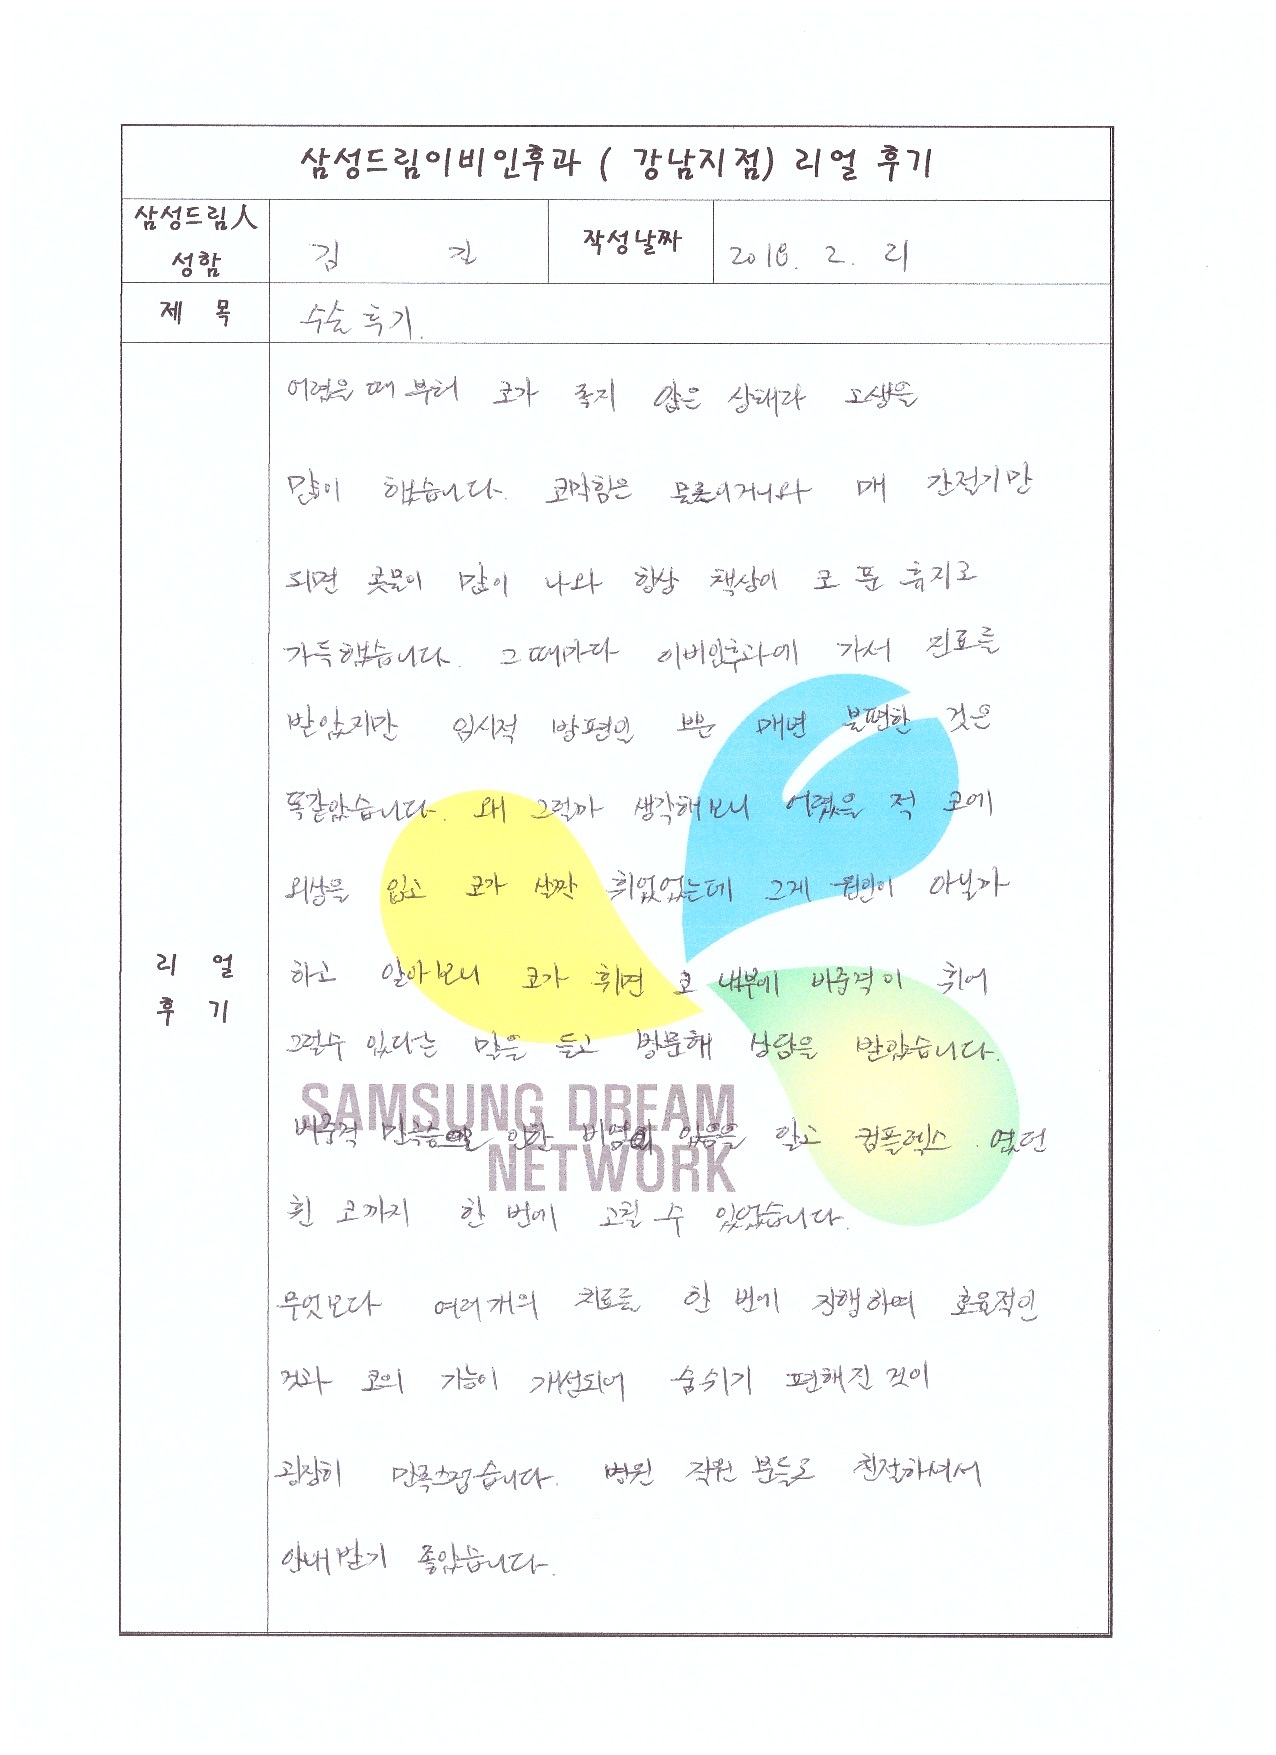 삼성드림이비인후과 ( 강남지점) 리얼 후기
삼성드림人 성함 김 진 작성날짜 2018. 2. 21
제 목 수술 후기.
어렸을 때 부터 코가 좋지 않은 상태라 고생을
많이 했습니다. 코막힘은 물론이거니와 매 간절기만
되면 콧물이 많이 나와 항상 책상이 코 푼 휴지로
가득했습니다. 그때마다 이비인후과에 가서 진료를
받았지만 임시적 방편일 뿐 매년 불편한 것은
똑같았습니다. 왜 그럴까 생각해보니 어렸을 적 코에
외상을 입고 코가 살짝 휘었었는데 그게 원인이 아닐까
하고 알아보니 코가 휘면 코 내부에 비중격이 휘어
그럴수 있다는 말을 듣고 방문해 상담을 받았습니다.
SAMSUNG DREAM
비중격 만곡증으로 인한 비염이 있음을 알고 컴플렉스 였던
NETWORK
휜 코까지 한 번에 고칠 수 있었습니다.
무엇보다 여러개의 치료를 한 번에 진행하여 효율적인
것과 코의 기능이 개선되어 숨쉬기 편해진 것이
굉장히 만족스럽습니다. 병원 직원 분들도 친절하셔서
안내받기 좋았습니다.
리 얼
후 기